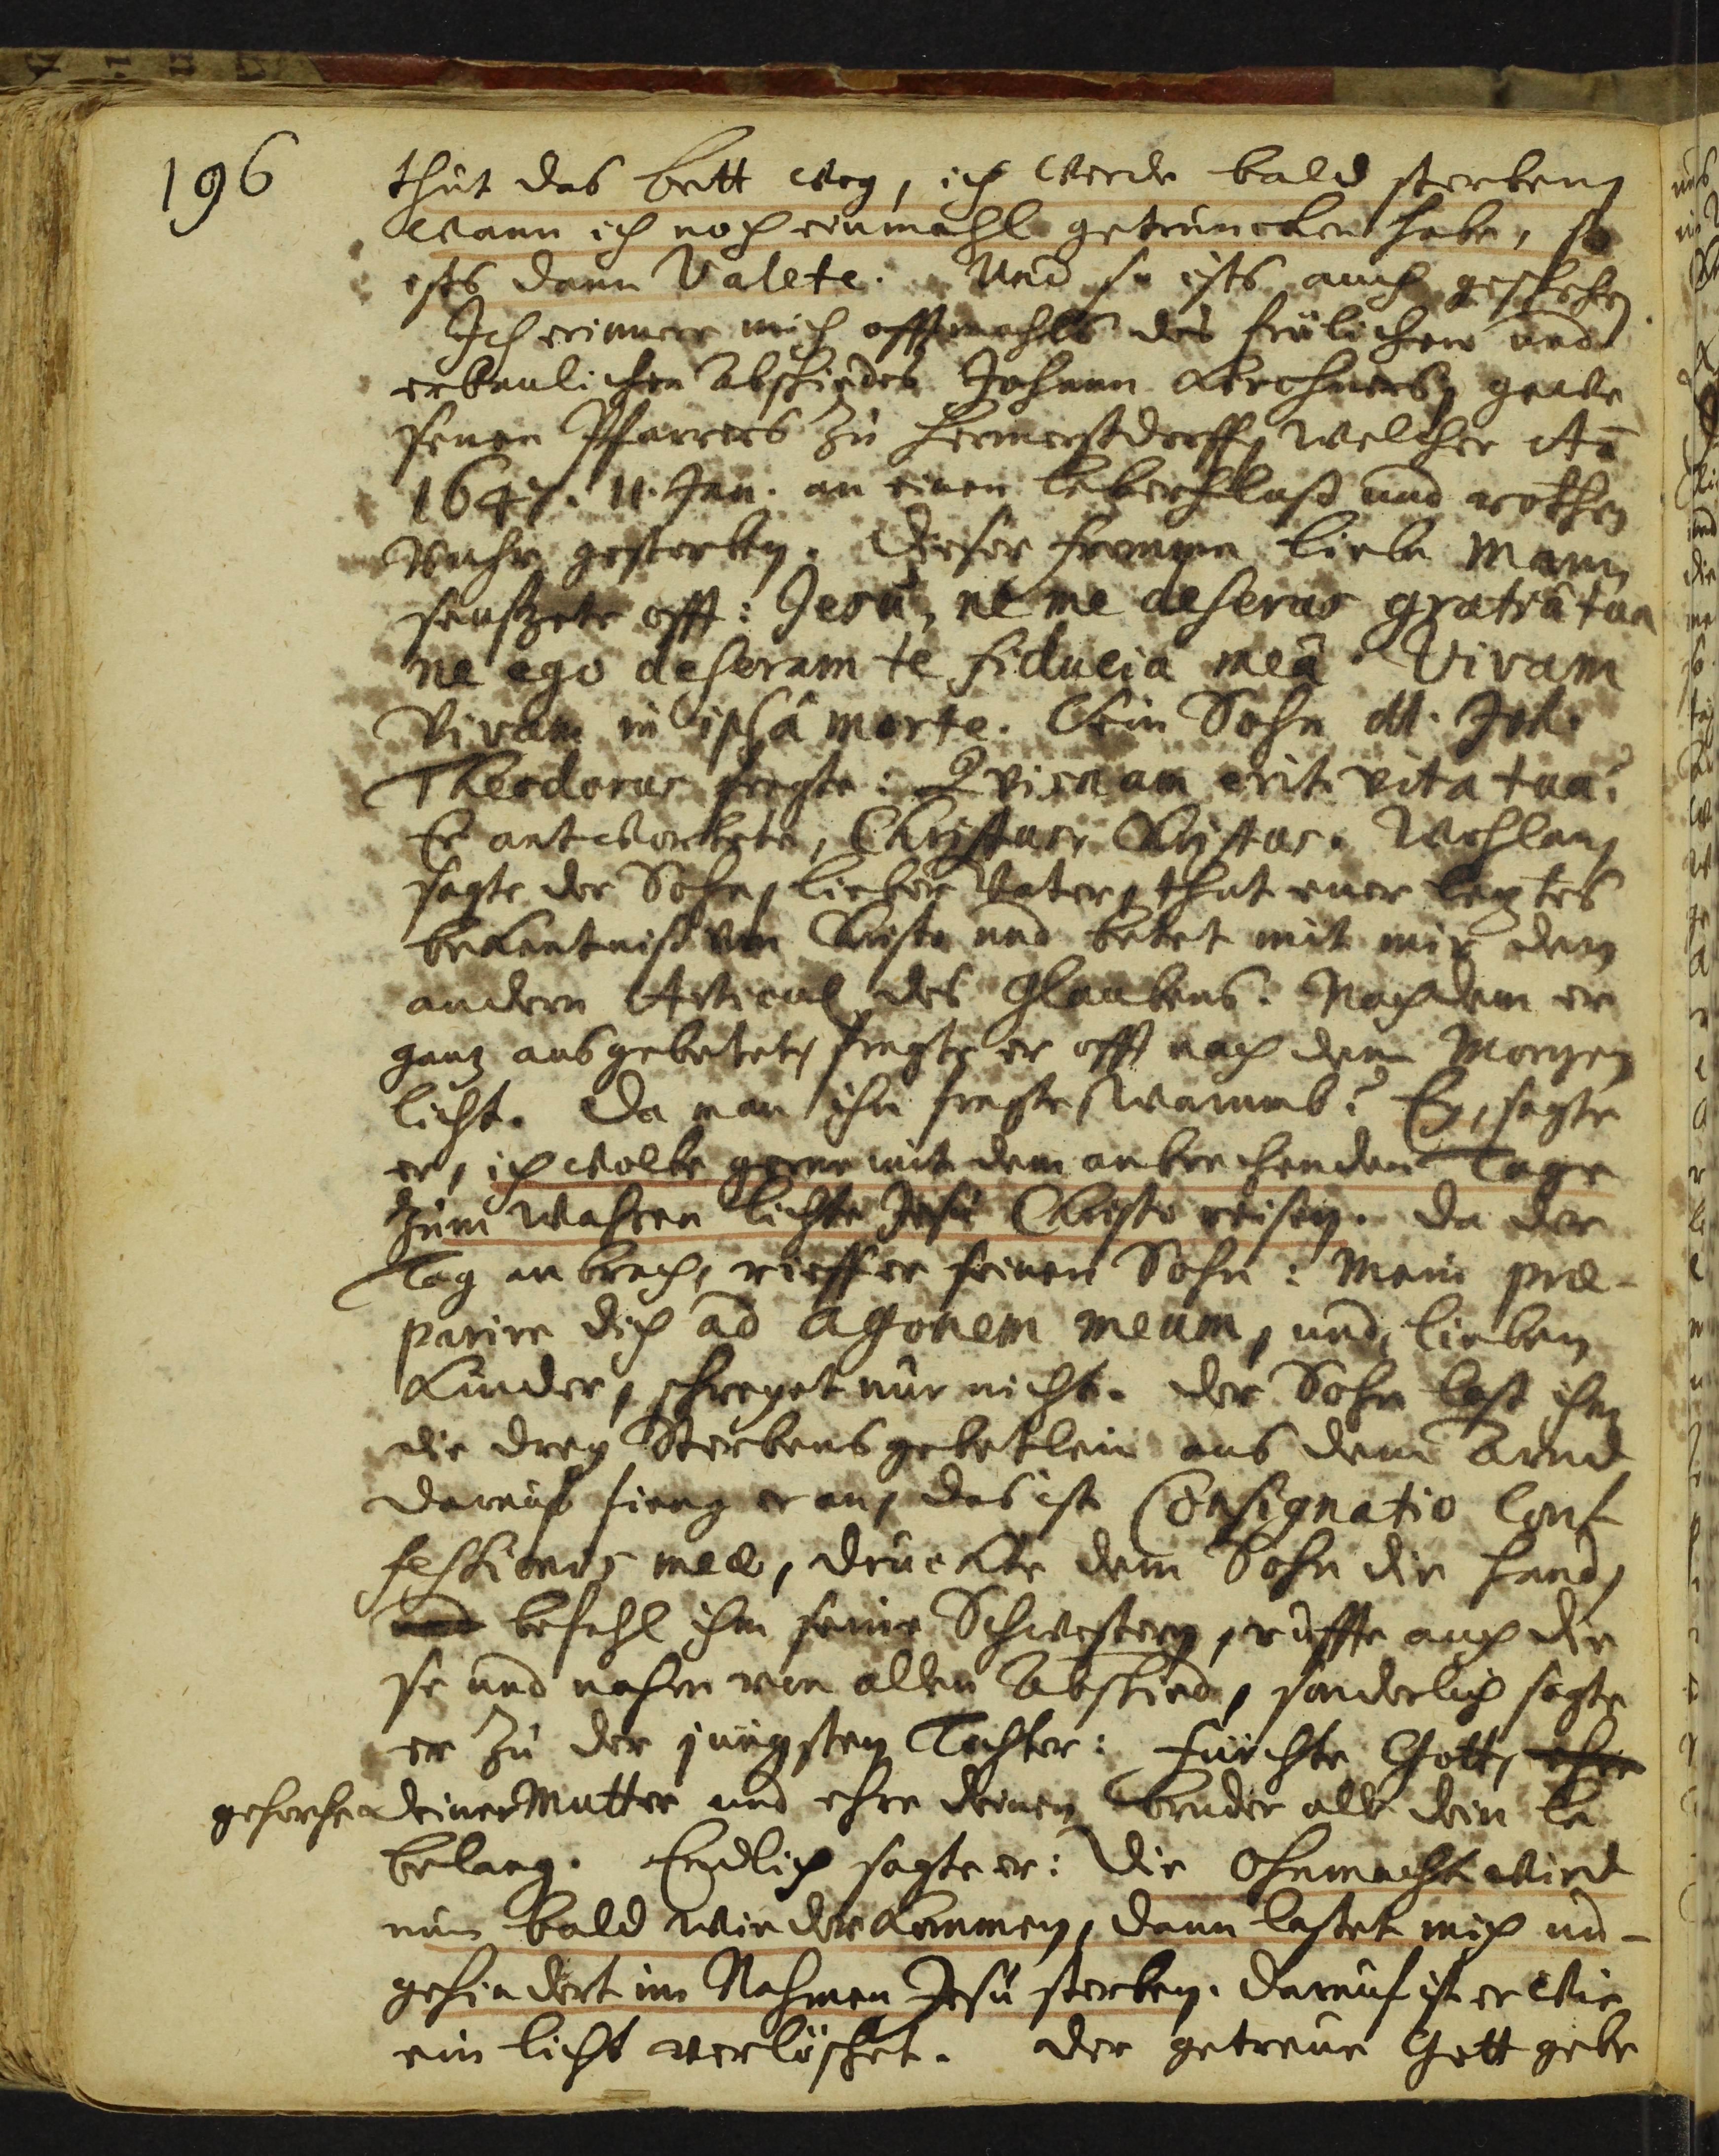 196
thut das bett weg, ich werde bald sterben,
wann ich noch einmahl getruncken habe, so
ists dann Valete. Und so ists auch geschehen.
Ich erinnere mich offtmahls des frölichen und
erbaulichen Abschiedes Johann Kirchners, gewe
senen Pfarrers zu Hermerstdorff, welcher Aō
1647. 11. Jan. an einen leberfluß und rothen
Ruhr gestorben. Dieser fromme liebe Mann
seufzete offt: Jesu, ne me deseras gratiâ tua
ne ego deseram te fiducia meâ. Vivam
Vivam in ipsâ morte. Sein Sohn M. Joh.
Theodorus fragte: Qvisnam erit vita tua?
Er antwortete, Christus, Christus. Wohlan,
sagte der Sohn, lieber Vater, thut euer leztes
bekentniß von Christo und betet mit mir den
andern Articul des Glaubens. Nachdem er
ganz ausgebetet, fragte er offt nach dem Morgen
licht. Da man ihn fragte, warumb? Ey, sagte
er, ich wolte gerne mit dem anbrechenden Tage
zum wahren lichte Jesu Christo reisen. Da der
Tag anbrach, rieff er seinen Sohn: Mein præ-
parire dich ad Agonem meum, und, lieben
Kinder, schreyet nur nicht. Der Sohn laß ihm
die drey Sterbensgebetlein aus dem Arnd
darauf fieng er an, das ist Consignatio Conf
fessionis meæ, druckte dem Sohn die Hand,
und befahl ihm seine Schwestern, ruffte auch die
se und nahm von allen Abschied, sonderlich sagte
er zu der jüngsten Tochter: fürchte Gott, ehre
gehorche deiner Mutter und ehre deinen bruder alle dein le
belang. Endlich sagte er: Die Ohnmacht wird
nun bald wiederkommen, dann lasset mich un-
gehindert im Nahmen Jesu sterben. Darauf ist er wie
ein licht verlöschet. Der getreue Gott gebe